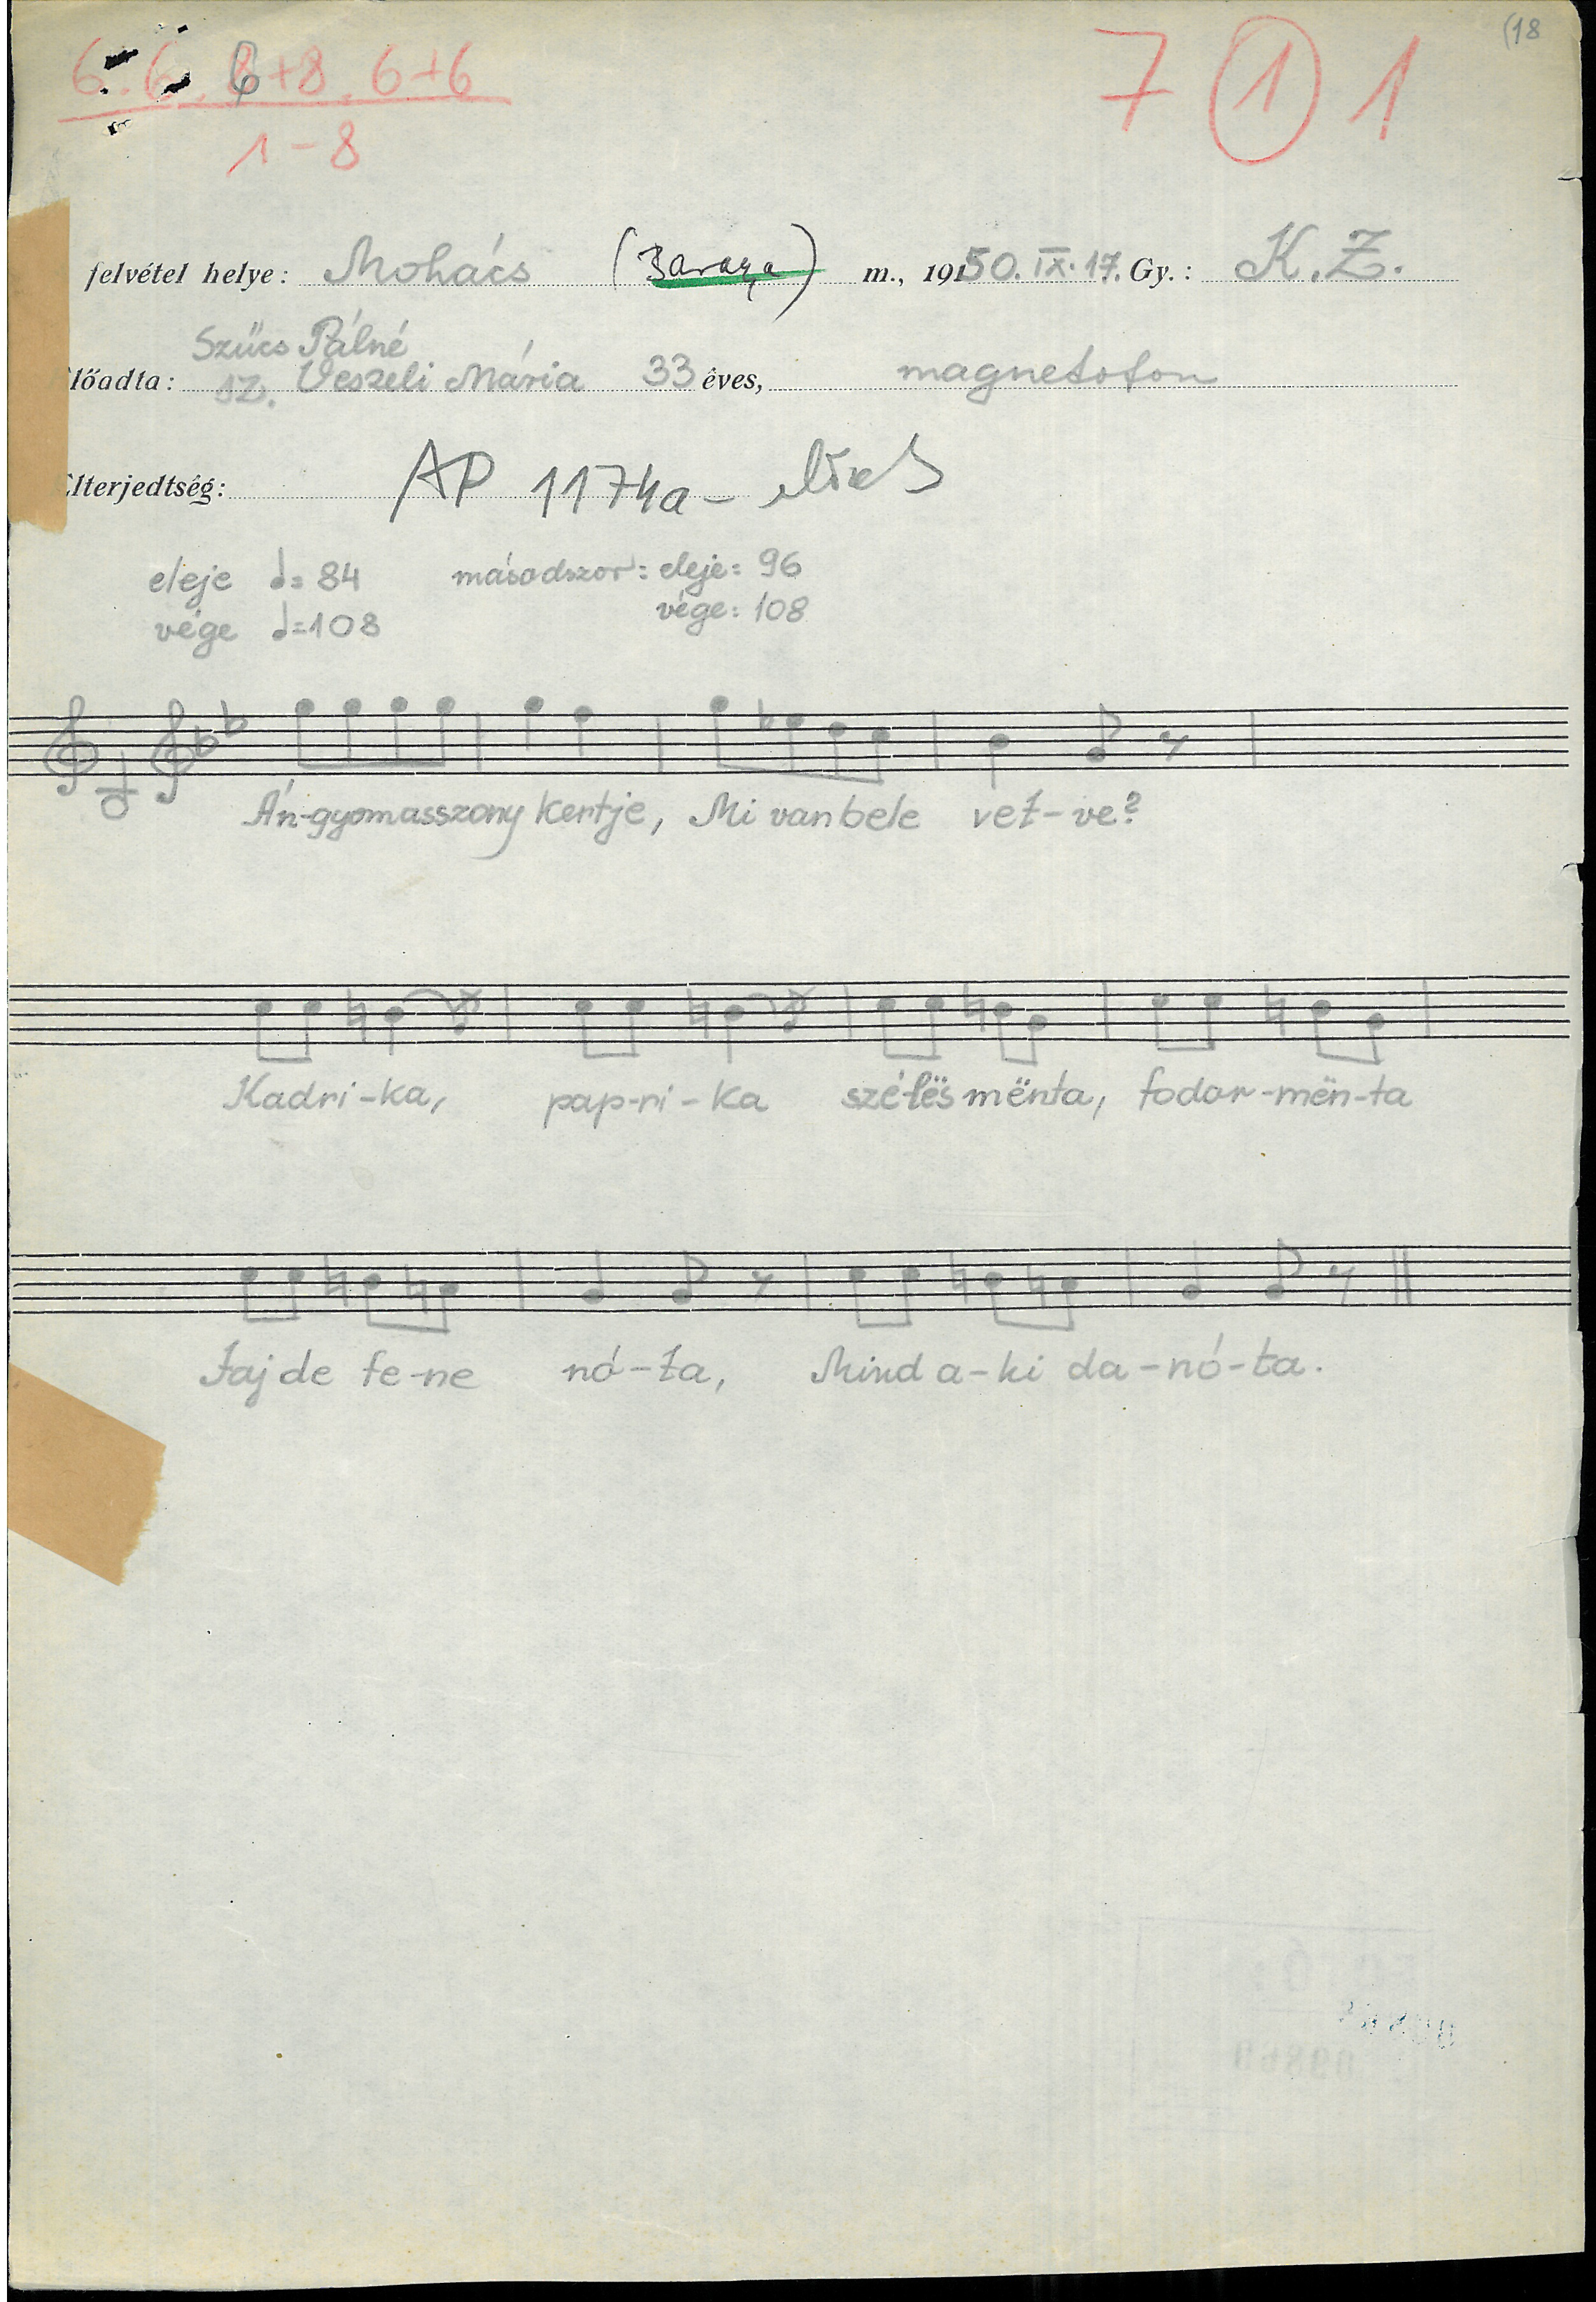 (18
6. 6. 6+8. 6+6
1-8
7 1 1
felvétel helye: Mohács (Baranya) m., 1950. IX. 17. Gy.: K.Z.
Szűcs Pálné
lőadta: sz. Veszeli Mária 33 éves, magnetofon
lterjedtség: AP 1174a-
eleje = 84 másodszor: eleje = 96
vége = 108 vége = 108
Án-gyomasszony kertje, Mi van bele vet-ve?
Kadri-ka, pap-ri-ka szé-lës mënta, fodor-mën-ta
taj de fe-ne nó-ta, Mind a-ki da-nó-ta.